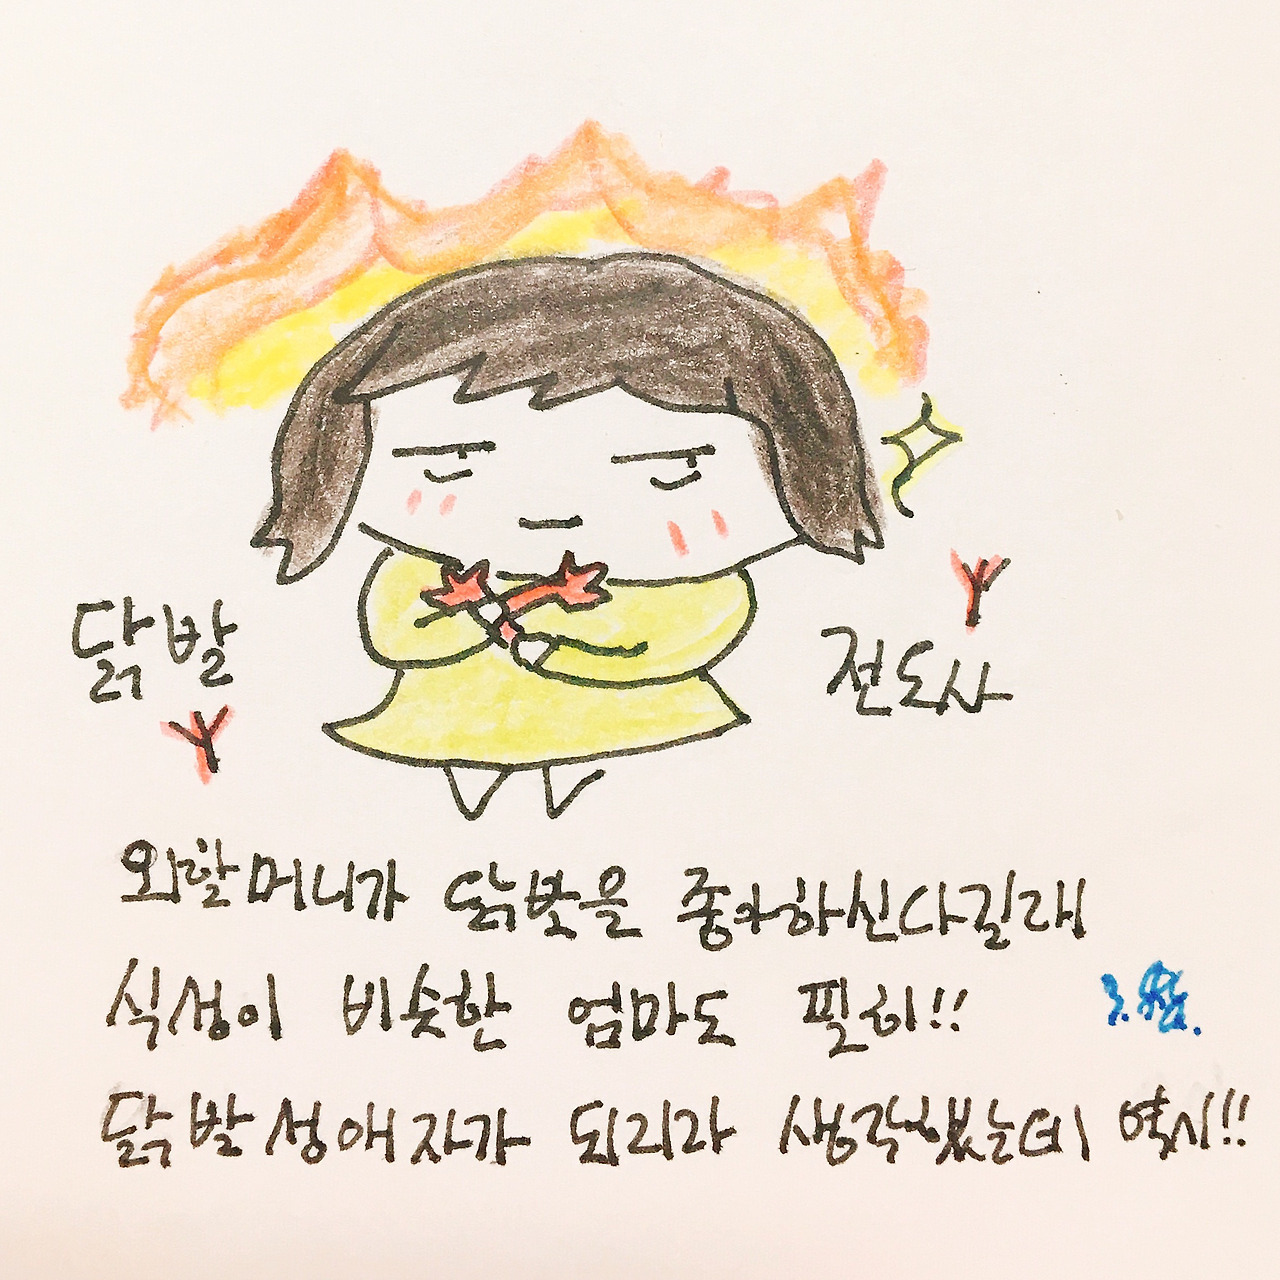 닭발
전도사
외할머니가 닭볏을 좋아하신다길래
식성이 비슷한 엄마도 필히!!
닭발성애자가 되리라 생각했는데 역시!!